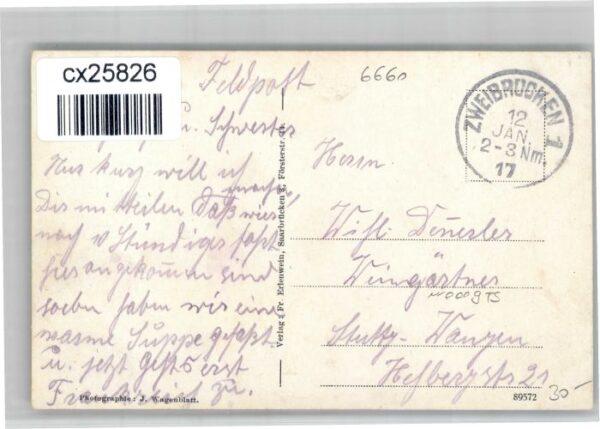 cx25826
Feldpost
6660
u. Schwester
Nur kurz will ich
Dir mitteilen daß wir
nach 10 Stündiger fahrt
hier angekommen sind
soeben haben wir eine
warme Suppe gefaßt
u. jetzt gehts erst
Frankreich zu.
Photographie: J. Wagenblatt.
Verlag: Fr Erlenwein, Saarbrücken 2, Försterstr.
ZWEIBRÜCKEN 1
12
JAN
2-3 Nm.
17
Herrn
Weingärtner
Stuttg- Wangen
21
89572
30-